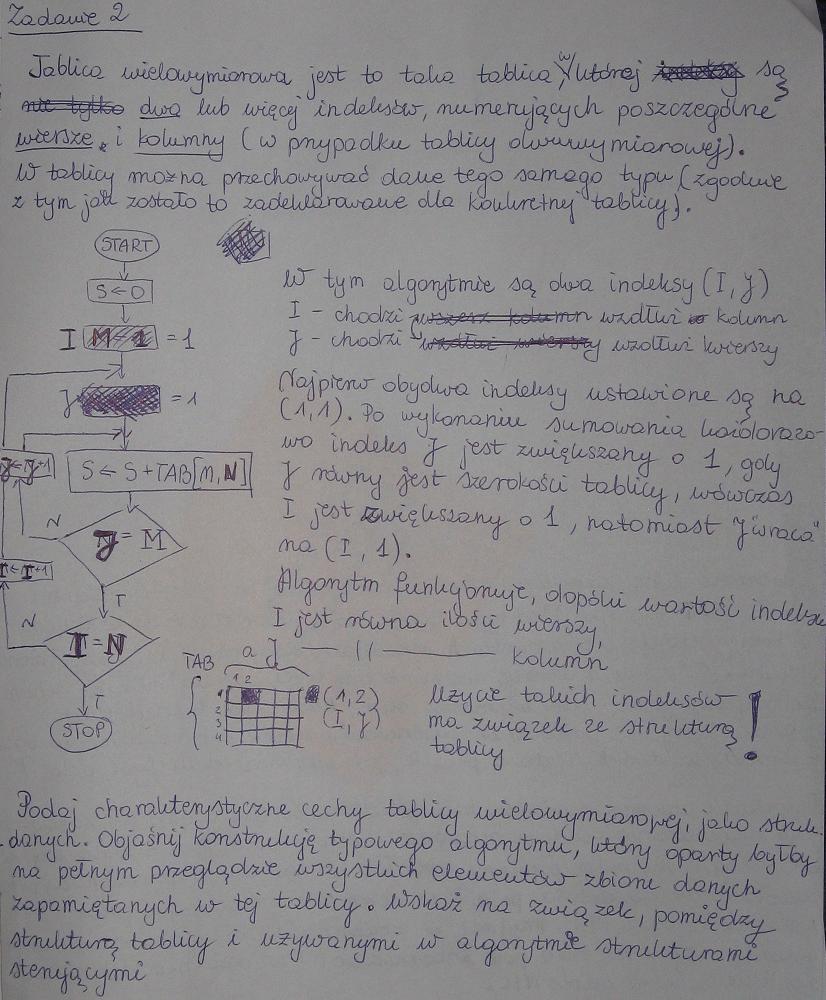 Zadanie 2
Tablica wielowymiarowa jest to taka tablica, w której są
dwa lub więcej indeksów, numerujących poszczególne
wiersze i kolumny (w przypadku tablicy dwuwymiarowej).
W tablicy można przechowywać dane tego samego typu (zgodnie
z tym jak zostało to zadeklarowane dla konkretnej tablicy).
START
S ← 0
I = 1
J = 1
J ← J+1
S ← S + TAB[M, N]
N
J = M
I ← I+1
T
N
I = N
T
STOP
W tym algorytmie są dwa indeksy (I, J)
I - chodzi wzdłuż kolumn
J - chodzi wzdłuż wierszy
Najpierw obydwa indeksy ustawione są na
(1,1). Po wykonaniu sumowania każdorazo-
wo indeks J jest zwiększany o 1, gdy
J równy jest szerokości tablicy, wówczas
I jest zwiększany o 1, natomiast J "wraca"
na (I, 1).
Algorytm funkcjonuje, dopóki wartość indeksu
I jest równa ilości wierszy,
a J — 11 — kolumn
TAB
1 2
1
2
3
4
(1,2)
(I, J)
Użycie takich indeksów
ma związek ze strukturą
tablicy !
Podaj charakterystyczne cechy tablicy wielowymiarowej, jako struk.
danych. Objaśnij konstrukcję typowego algorytmu, który oparty byłby
na pełnym przeglądzie wszystkich elementów zbioru danych
zapamiętanych w tej tablicy. Wskaż na związek, pomiędzy
strukturą tablicy i używanymi w algorytmie strukturami
sterującymi